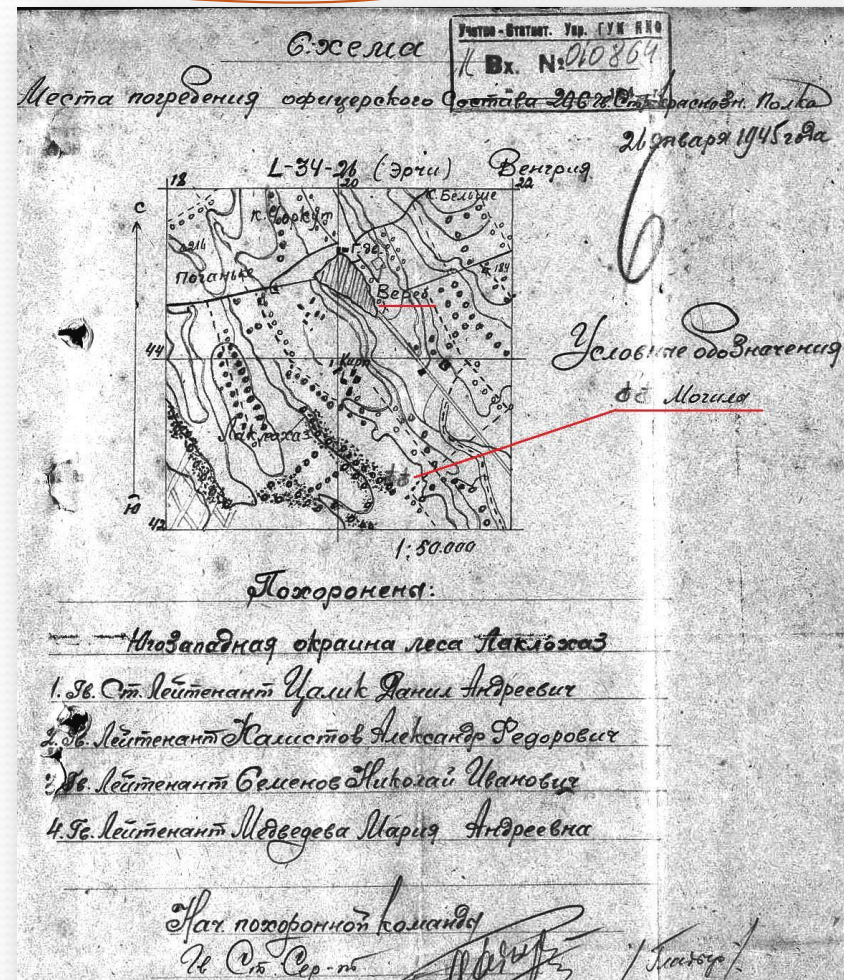 Схема
Учетно-Статист. Упр. ГУК НКО
Вх. № 010864
Места погребения офицерского Состава 206 Гв. Стр. Краснозн. Полка
26 января 1945 года
L-34-26 (Эрчи) Венгрия
18 20 22
С
К. Чоркут
К. Бельше
216
Г. дв.
184
Поганьке
Вереб
44
Кирп.
Условные обозначения
Могила
Лаклохаз
Ю
42
1:50.000
Похоронены:
Югозападная окраина леса Лаклохаз
1. Гв. Ст. Лейтенант Цалик Данил Андреевич
2. Гв. Лейтенант Калистов Александр Федорович
3. Гв. Лейтенант Семенов Николай Иванович
4. Гв. Лейтенант Медведева Мария Андреевна
Нач. похоронной команды
Гв Ст. Сер-нт